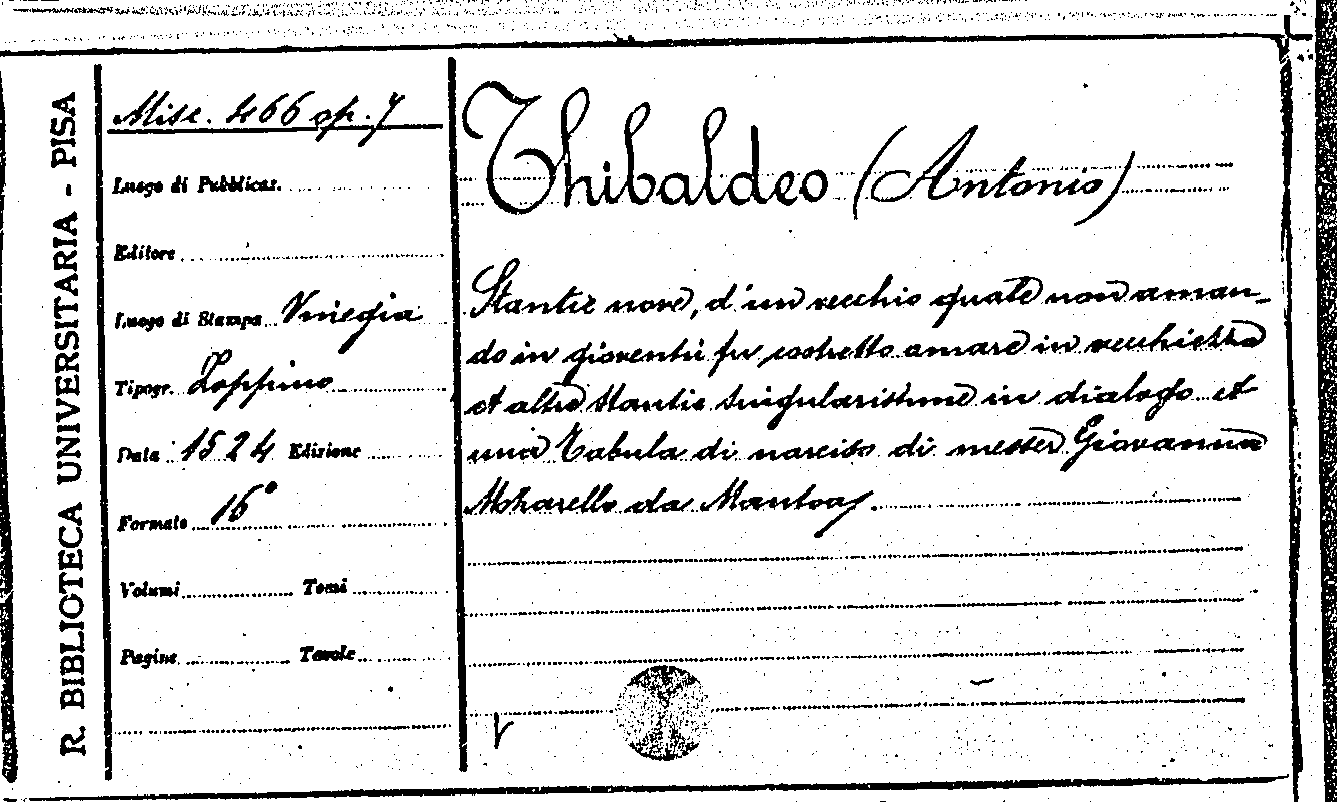 R. BIBLIOTECA UNIVERSITARIA - PISA
Misc. 466 op. 7
Luogo di Pubblicaz.
Editore
Luogo di Stampa Vinegia
Tipogr. Zoppino
Data 1524 Edizione
Formato 16°
Volumi Tomi
Pagine Tavole
Thibaldeo (Antonio)
Stantie nove, d'un vecchio quale non aman-
do in gioventù fu costretto amare in vecchiezza
et altre stantie singularissime in dialogo et
una Tabula di narciso di messer Giovanni
da Mantoa.
V